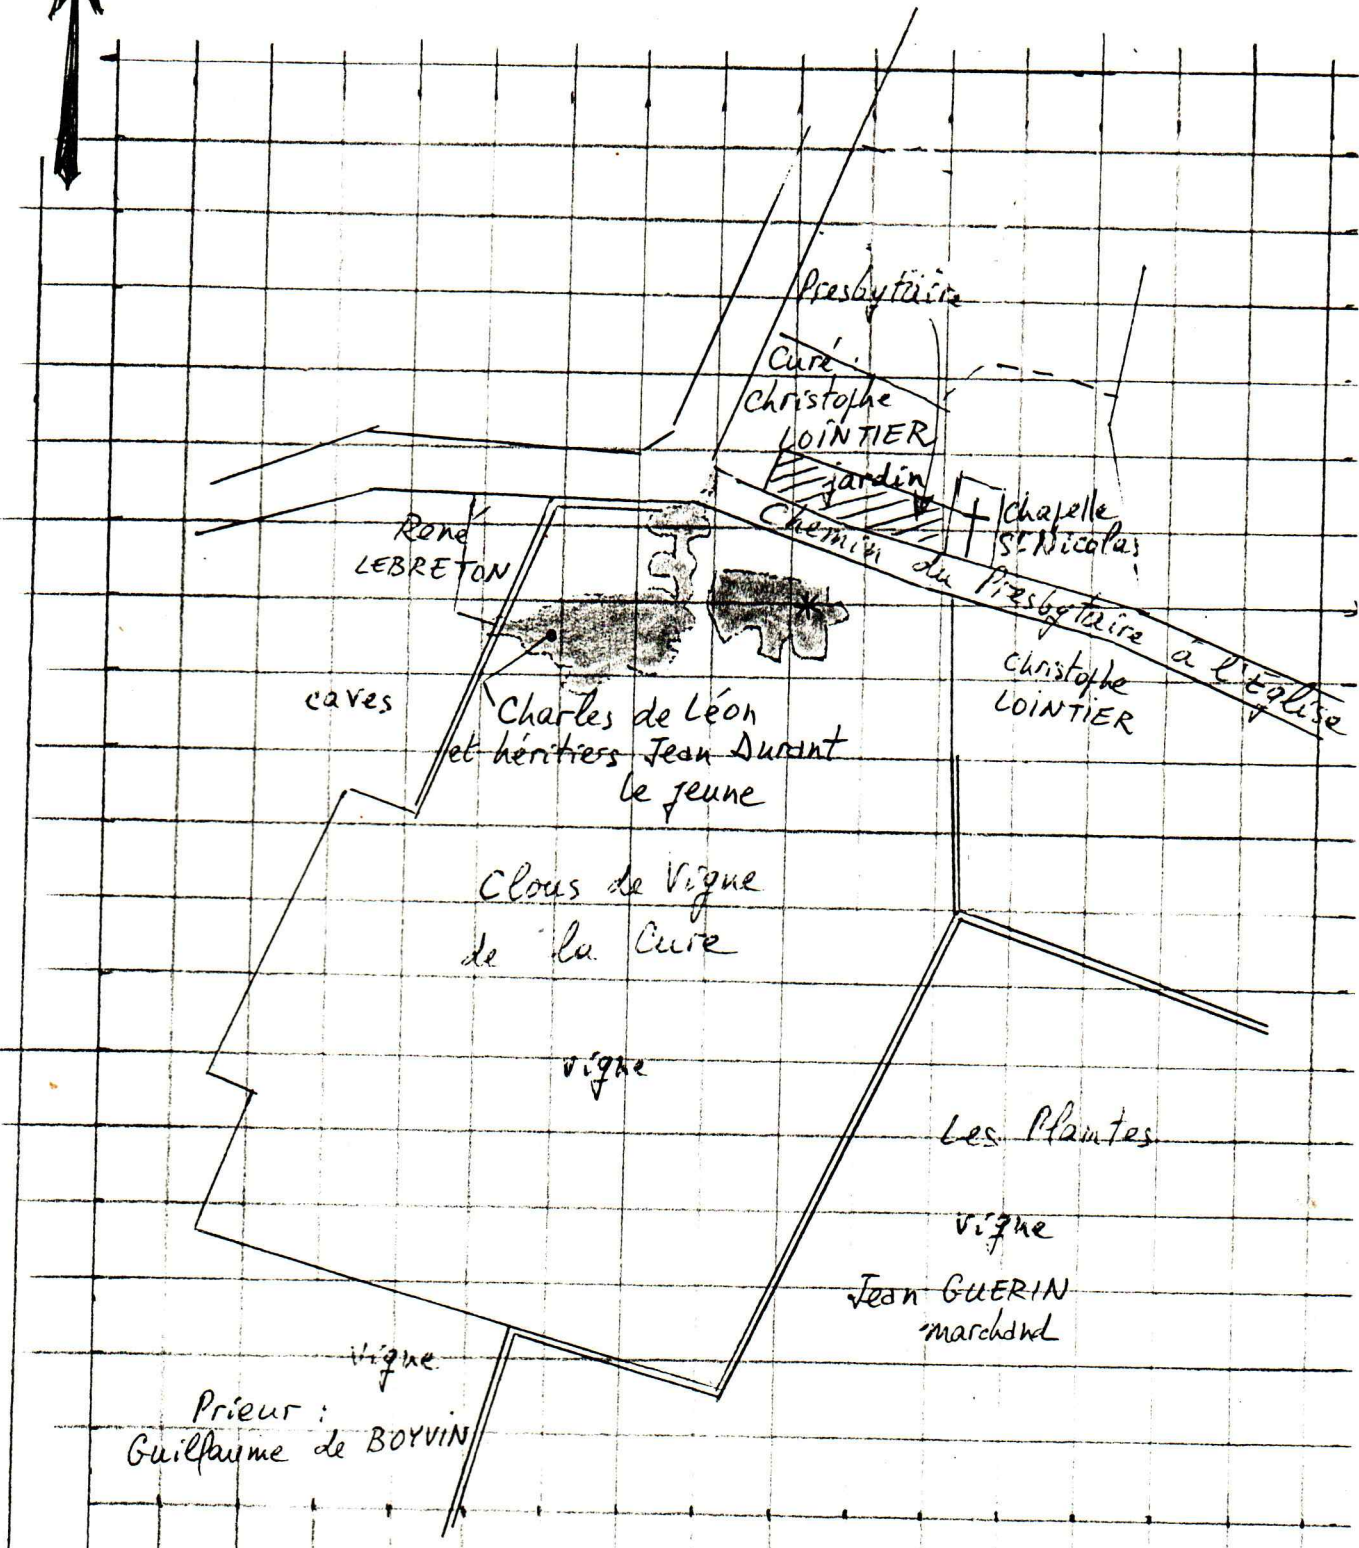 Presbytaire
Curé
Christophe
LOINTIER
jardin
Chapelle
St Nicolas
Chemin du Presbytaire à l'Eglise
René
LEBRETON
Christophe
LOINTIER
caves
Charles de Léon
et héritiers Jean Durant
le jeune
Clous de Vigne
de la Cure
vigne
Les Plantes
vigne
Jean GUERIN
marchand
vigne
Prieur :
Guillaume de BOYVIN